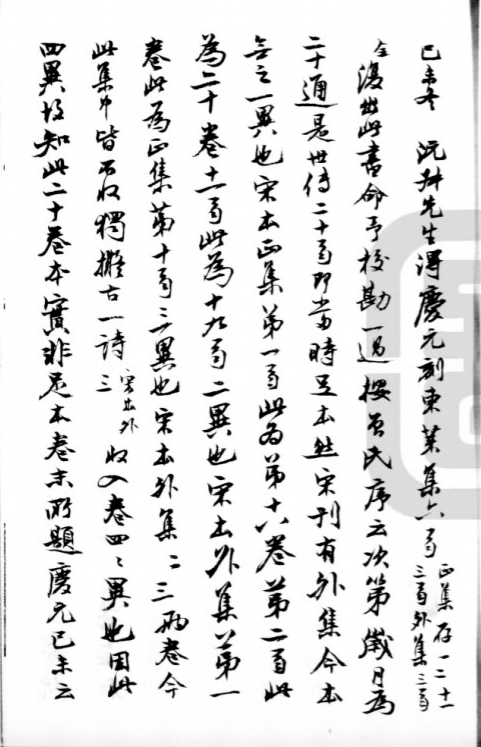 己未冬 沅叔先生得慶元刻東萊集六卷正集存一二十一三卷外集三卷
全復出此書命予校勘一過按曾氏序云次第歲月為
二十通是世傳二十卷即當時足本然宋刊有外集今本
無之一異也宋本正集第一卷此為第十八卷第二卷此
為二十卷十一卷此為十九卷二異也宋本外集第一
卷此為正集第十卷三異也宋本外集二三兩卷今
此集中皆不收獨擬古一詩宋本外三收入卷四四異也因此
四異故知此二十卷本實非足本卷末所題慶元己未云